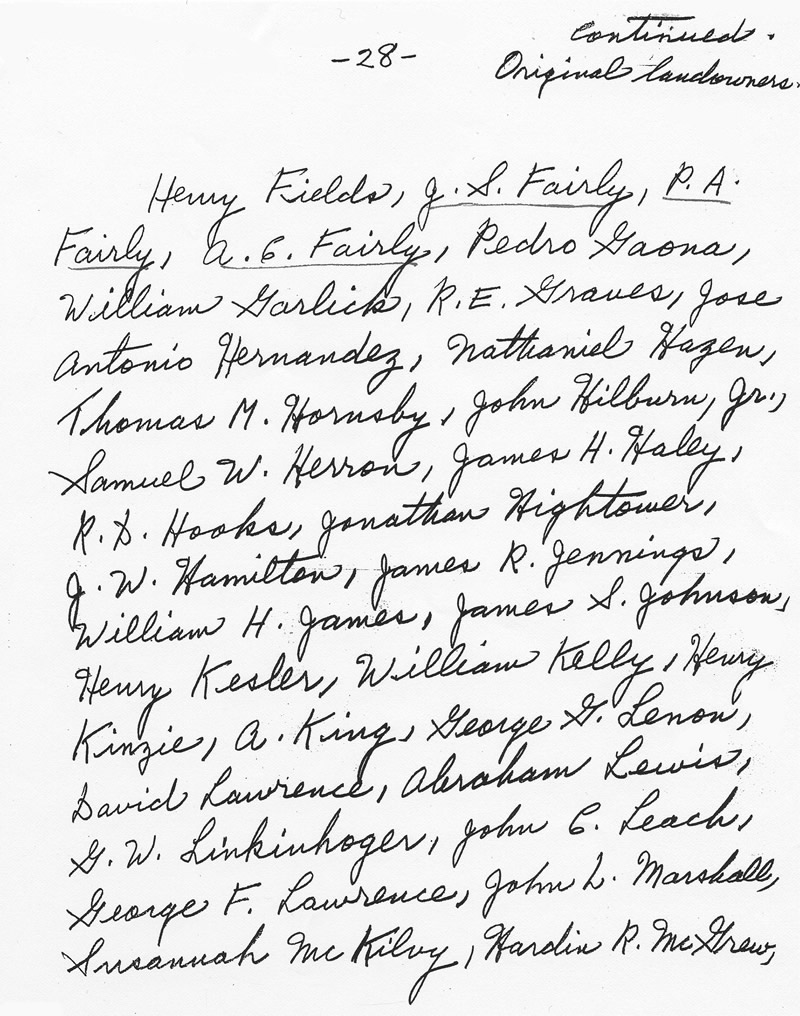 continued.
-28-
Original landowners.
Henry Fields, J. S. Fairly, P. A.
Fairly, A. C. Fairly, Pedro Gaona,
William Garlick, R. E. Graves, Jose
Antonio Hernandez, Nathaniel Hazen,
Thomas M. Hornsby, John Hilburn, Jr.,
Samuel W. Herron, James H. Haley,
R. D. Hooks, Jonathan Hightower,
J. W. Hamilton, James R. Jennings,
William H. James, James S. Johnson,
Henry Kesler, William Kelly, Henry
Kinzie, A. King, George G. Lenon,
David Lawrence, Abraham Lewis,
G. W. Linkinhoger, John C. Leach,
George F. Lawrence, John L. Marshall,
Susannah McKilvy, Hardin R. McGrew,